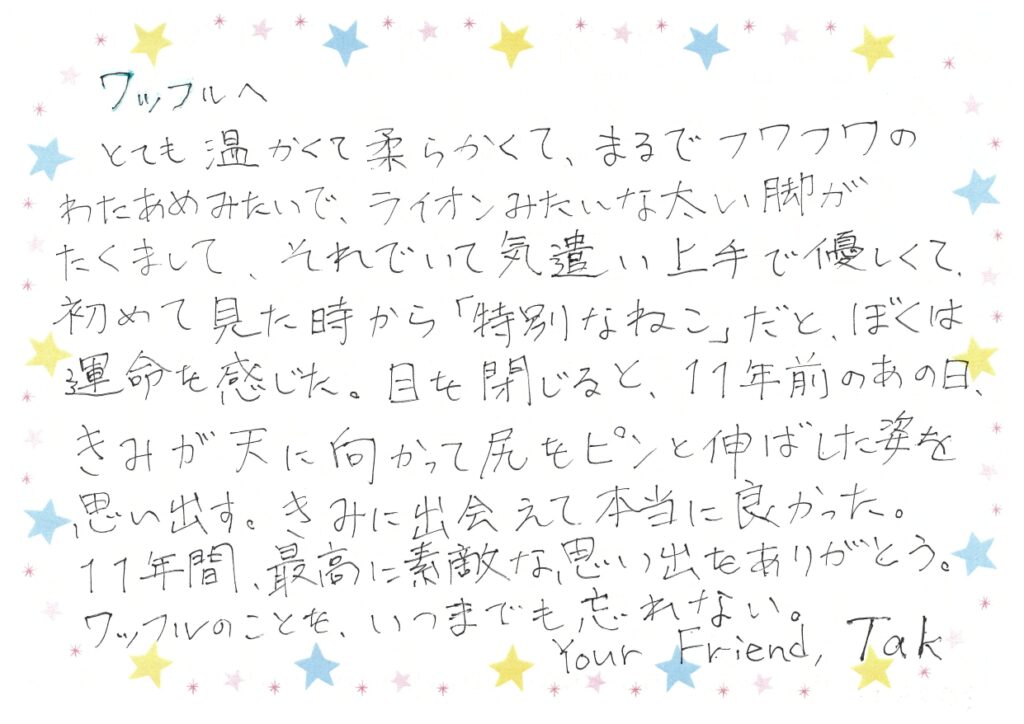 ワッフルへ
とても温かくて柔らかくて、まるでフワフワの
わたあめみたいで、ライオンみたいな太い脚が
たくましくて、それでいて気遣い上手で優しくて、
初めて見た時から「特別なねこ」だと、ぼくは
運命を感じた。目を閉じると、11年前のあの日、
きみが天に向かって尻をピンと伸ばした姿を
思い出す。きみに出会えて本当に良かった。
11年間、最高に素敵な思い出をありがとう。
ワッフルのことを、いつまでも忘れない。
Your Friend, Tak